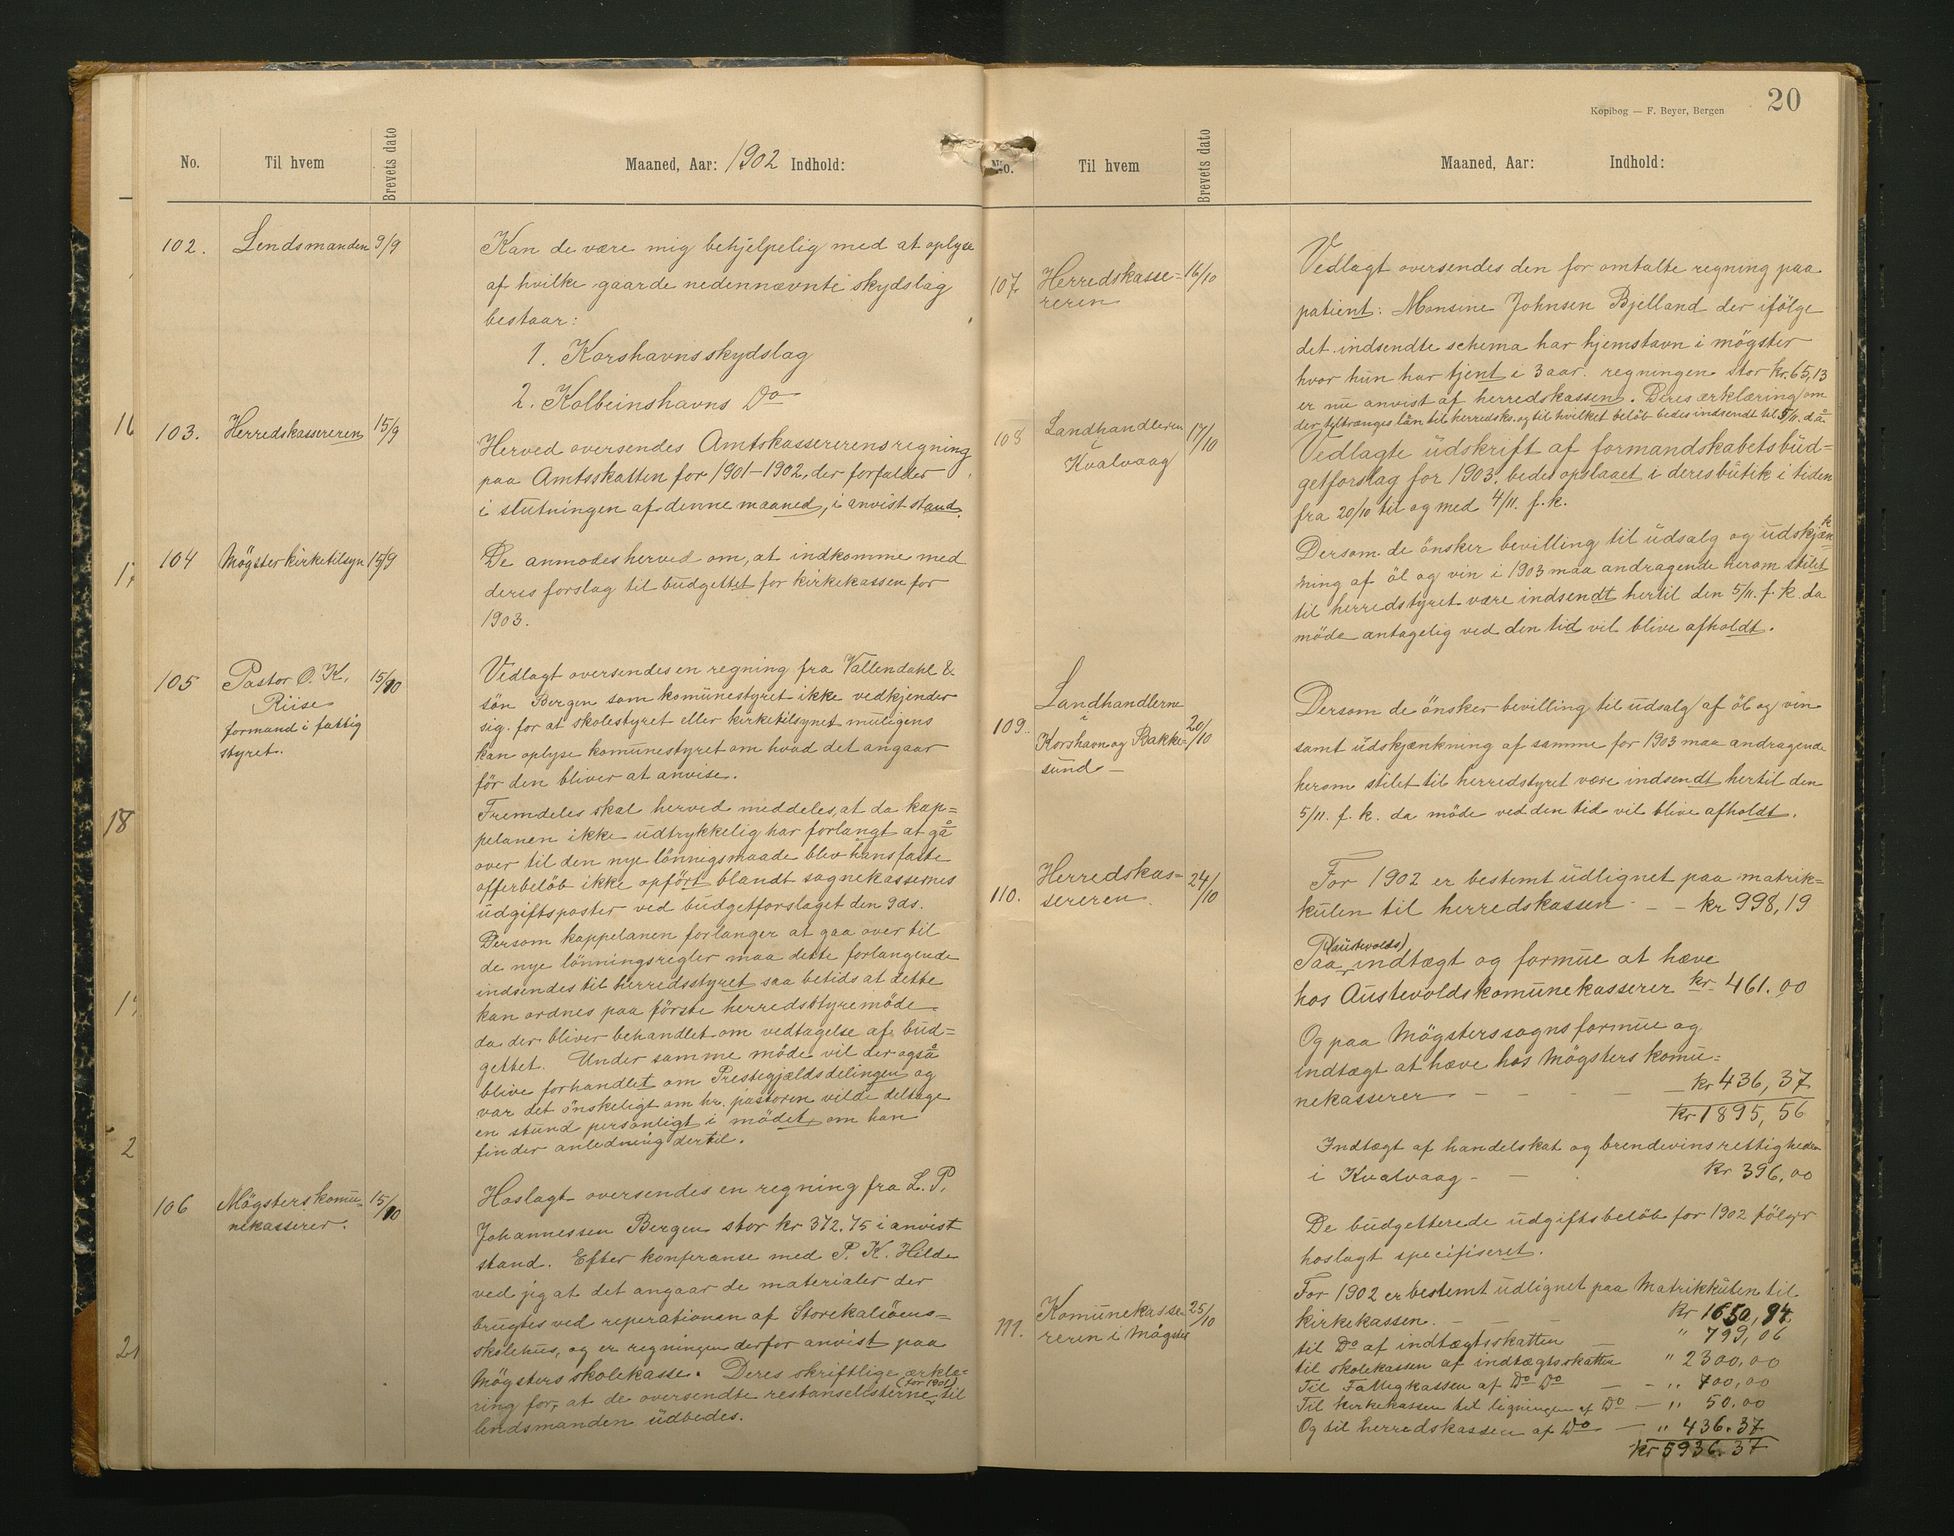 No. Til hvem Brevets dato Maaned, Aar: 1902 Indhold:
102. Lendsmanden 9/9
Kan de være mig behjelpelig med at oplyse
af hvilke gaarde nedennævnte skydslag
bestaar:
1. Korshavnsskydslag
2. Kolbeinshavns Do
103. Herredskassereren 15/9
Herved oversendes Amtskassererens regning
paa Amtsskatten for 1901-1902, der forfalder
i slutningen af denne maaned, i anvist stand.
104 Mögster kirketilsyn 15/9
De anmodes herved om, at indkomme med
deres forslag til budgettet for kirkekassen for
1903.
105 Pastor O. K. 15/10
Riise
formand i fattig
styret.
Vedlagt oversendes en regning fra Vallendahl &
sön Bergen som komunestyret ikke vedkjender
sig. for at skolestyret eller kirketilsynet muligens
kan oplyse komunestyret om hvad det angaar
för den bliver at anvise.
Fremdeles skal herved meddeles, at da kap=
pelanen ikke udtrykkelig har forlangt at gå
over til den nye lönnigsmaade blev hans faste
offerbelöb ikke opfört blandt sognekassernes
udgiftsposter ved budgetforslaget den 9 ds.
Dersom kappelanen forlanger at gaa over til
de nye lönningsregler maa dette forlangende
indsendes til herredsstyret saa betids at dette
kan ordnes paa förste herredsstyremöde
da der bliver behandlet om vedtagelse af bud=
gettet. Under samme möde vil der også
blive forhandlet om Prestegjældsdelingen og
var det önskeligt om hr. pastoren vilde deltage
en stund personligt i mödet, om han
finder anledning dertil.
106 Mögsters komu= 15/10
nekasserer.
Hoslagt oversendes en regning fra L. P.
Johannessen Bergen stor kr 372.75 i anvist
stand. Efter konferanse med P. K. Hilde
ved jeg at det angaar de materialer der
brugtes ved reperationen af Storekalsöens=
skolehus, og er regningen derfor anvist paa
Mögsters skolekasse. Deres skriftlige erklæ=
ring for, at de oversendte restanselisterne til
lendsmanden udbedes.
Kopibog — F. Beyer, Bergen 20
No. Til hvem Brevets dato Maaned, Aar: Indhold:
107. Herredskasse= 16/10
reren
Vedlagt oversendes den for omtalte regning paa
patient: Monsine Johnsen Bjelland der ifölge
det indsendte schema har hjemstavn i mögster
hvor hun har tjent i 3 aar. regningen stor kr. 65,13
er nu anvist af herredskassen. Deres erklæring om
der tyltranges lån til herredsks. og til hvilket belöb bedes indsendt til 5/11. d.å.
108 Landhandleren 17/10
i
Kvalvaag
Vedlagte udskrift af formandskabets bud=
getforslag for 1903. bedes opslaaet i deres butik i tiden
fra 20/10 til og med 4/11. f. k.
Dersom de önsker bevilling til udsalg og udskjæn=
kning af öl og vin i 1903 maa andragende herom stilet
til herredstyret være indsendt hertil den 5/11. f. k. da
möde antagelig ved den tid vil blive afholdt.
109. Landhandlerne 20/10
i
Korshavn og Bakke=
sund
Dersom de önsker bevilling til udsalg af öl og vin
samt udskjænkning af samme for 1903 maa andragende
herom stilet til herredstyret være indsendt hertil den
5/11. f. k. da möde ved den tid vil blive afholdt.
110. Herredskas= 24/10
sereren.
For 1902 er bestemt udlignet paa matrik=
kulen til herredskassen - - kr 998,19
(austevolds)
Paa indtægt og formue at hæve
hos Austevolds komunekasserer kr 461.00
Og paa Mögsterssogns formue og
Indtægt at hæve hos Mögsters komu=
nekasserer - - - - kr 436,37
kr 1895,56
Indtægt af handelskat og brendevinsrettigheden
i Kvalvaag - - kr 396,00
De budgetterede udgiftsbelöb for 1902 fölger
hoslagt specifiseret.
111. Komunekasse 25/10
reren i Mögster
For 1902 er bestemt udlignet paa Matrikkulen til
kirkekassen. - - - kr 1650,94
til Do af indtægtsskatten " 799,06
til skolekassen af indtægtsskatten " 2300,00
Til Fattigkassen af Do Do - - " 700,00
Til kirkekassen til ligningen af Do - " 50.00
Og til herredskassen af Do - " 436.37
kr 5936.37
16
17
18
19
2
21